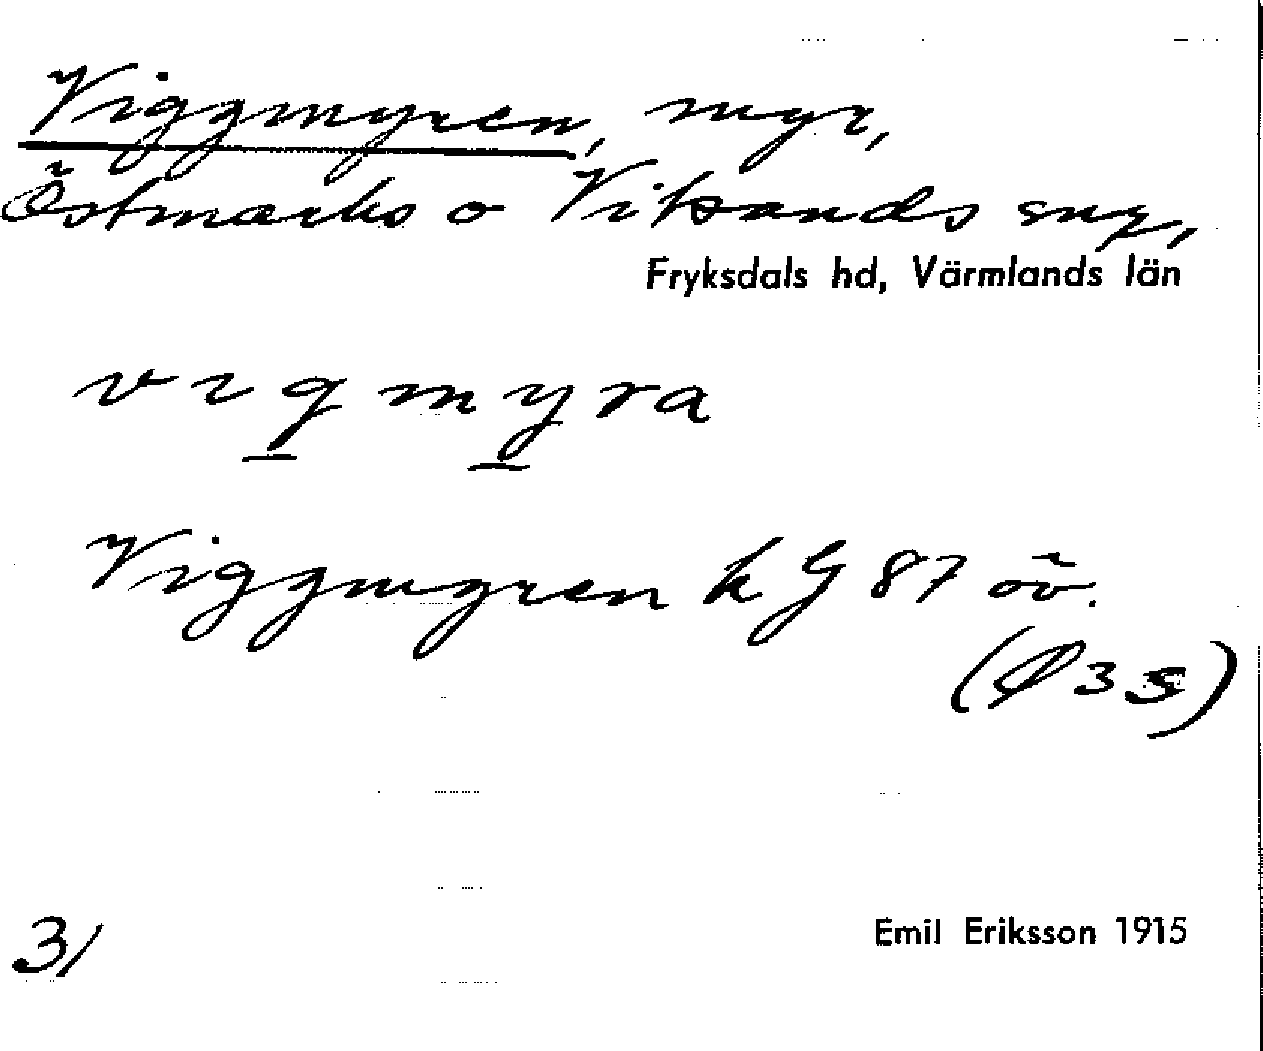 Viggmyren, myr,
Östmarks o Vitsands snr,
Fryksdals hd, Värmlands län
vıgmyra
Viggmyren k G 87 öv.
3/
Emil Eriksson 1915